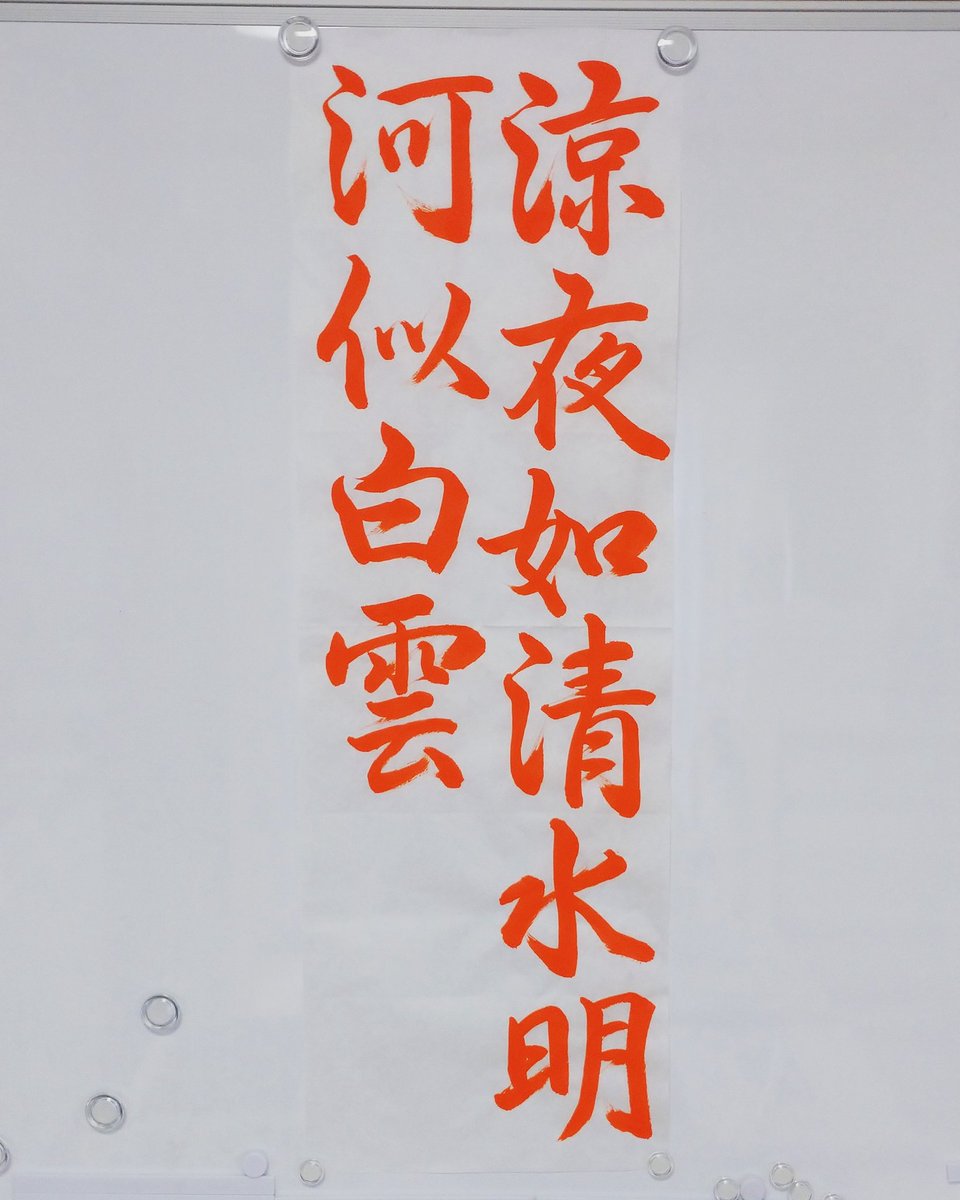 涼夜如清水明
河似白雲